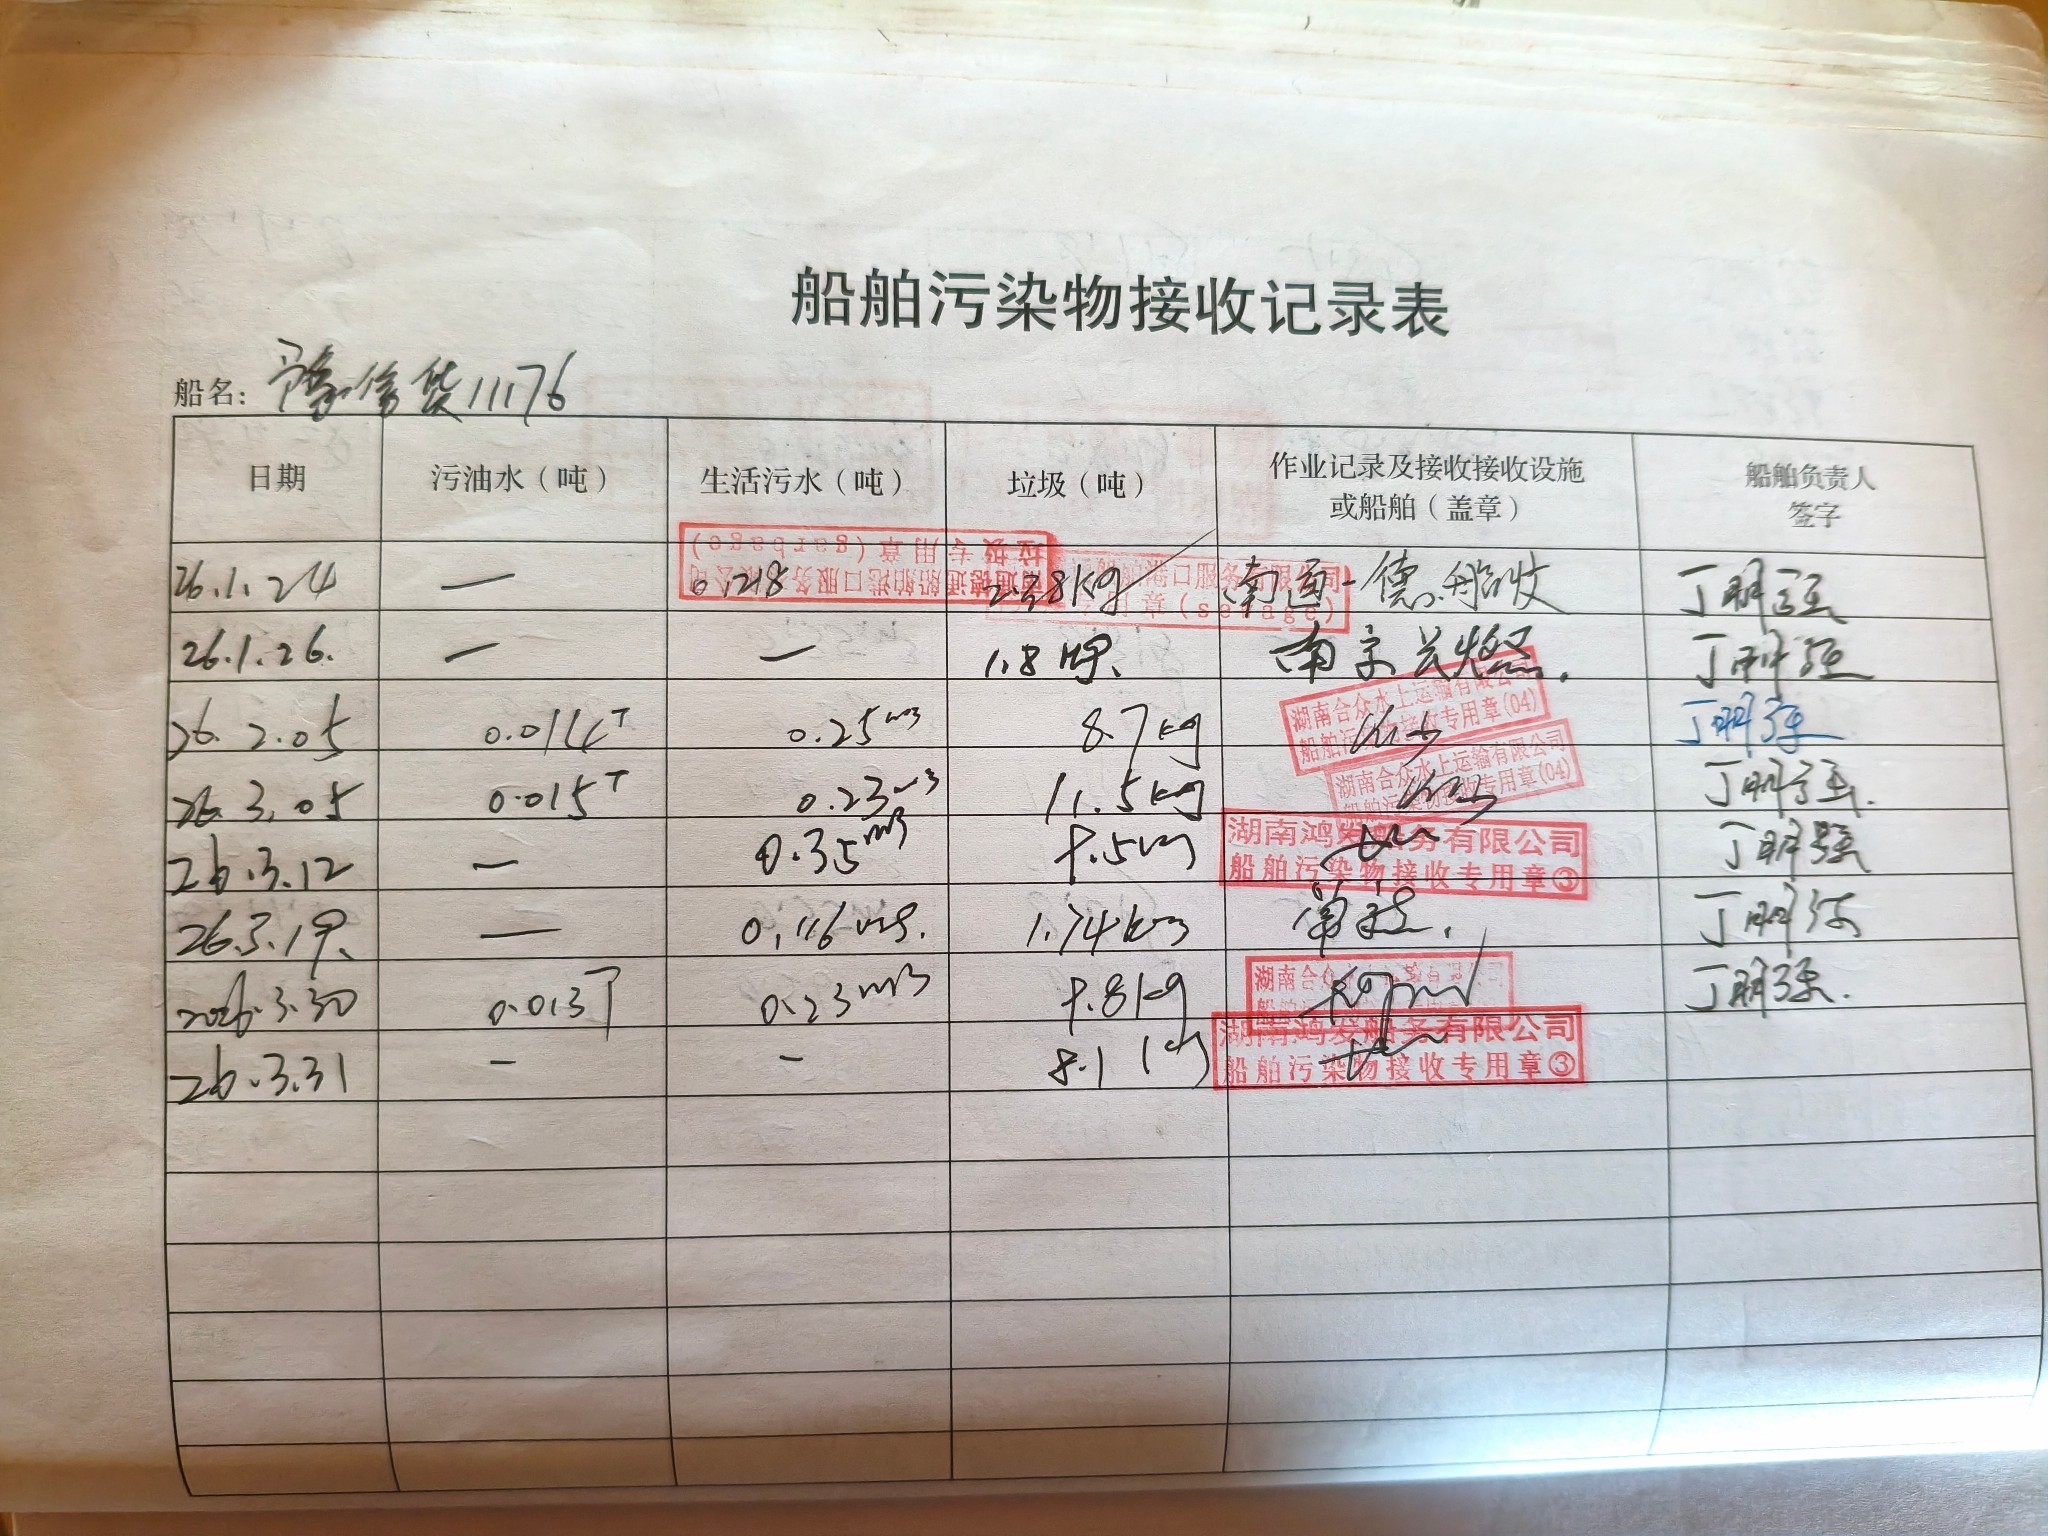 船舶污染物接收记录表
船名: 豫信货11176
日期 污油水（吨） 生活污水（吨） 垃圾（吨） 作业记录及接收接收设施或船舶（盖章） 船舶负责人签字
26.1.24 — 0.218 2.38kg 南通一德.船收 丁明强
垃圾专用章(garbage)
南通德通船舶港口服务有限公司
港口服务有限公司
专用章(sewage)
26.1.26. — — 1.8 南京 丁明强
26.2.05 0.014T 0.25m3 8.7kg 丁明强
湖南合众水上运输有限公司
船舶污染物接收专用章(04)
26.3.05 0.015T 0.23m3 11.5kg 丁明强.
湖南合众水上运输有限公司
船舶污染物接收专用章(04)
26.3.12 — 0.35m3 9.5kg 丁明强
湖南鸿发船务有限公司
船舶污染物接收专用章③
26.3.19. — 0.116m3. 1.74kg 丁明强
2026.3.30 0.013T 0.23m3 9.8kg 丁明强.
湖南合众
26.3.31 - - 8.1kg
湖南鸿发船务有限公司
船舶污染物接收专用章③